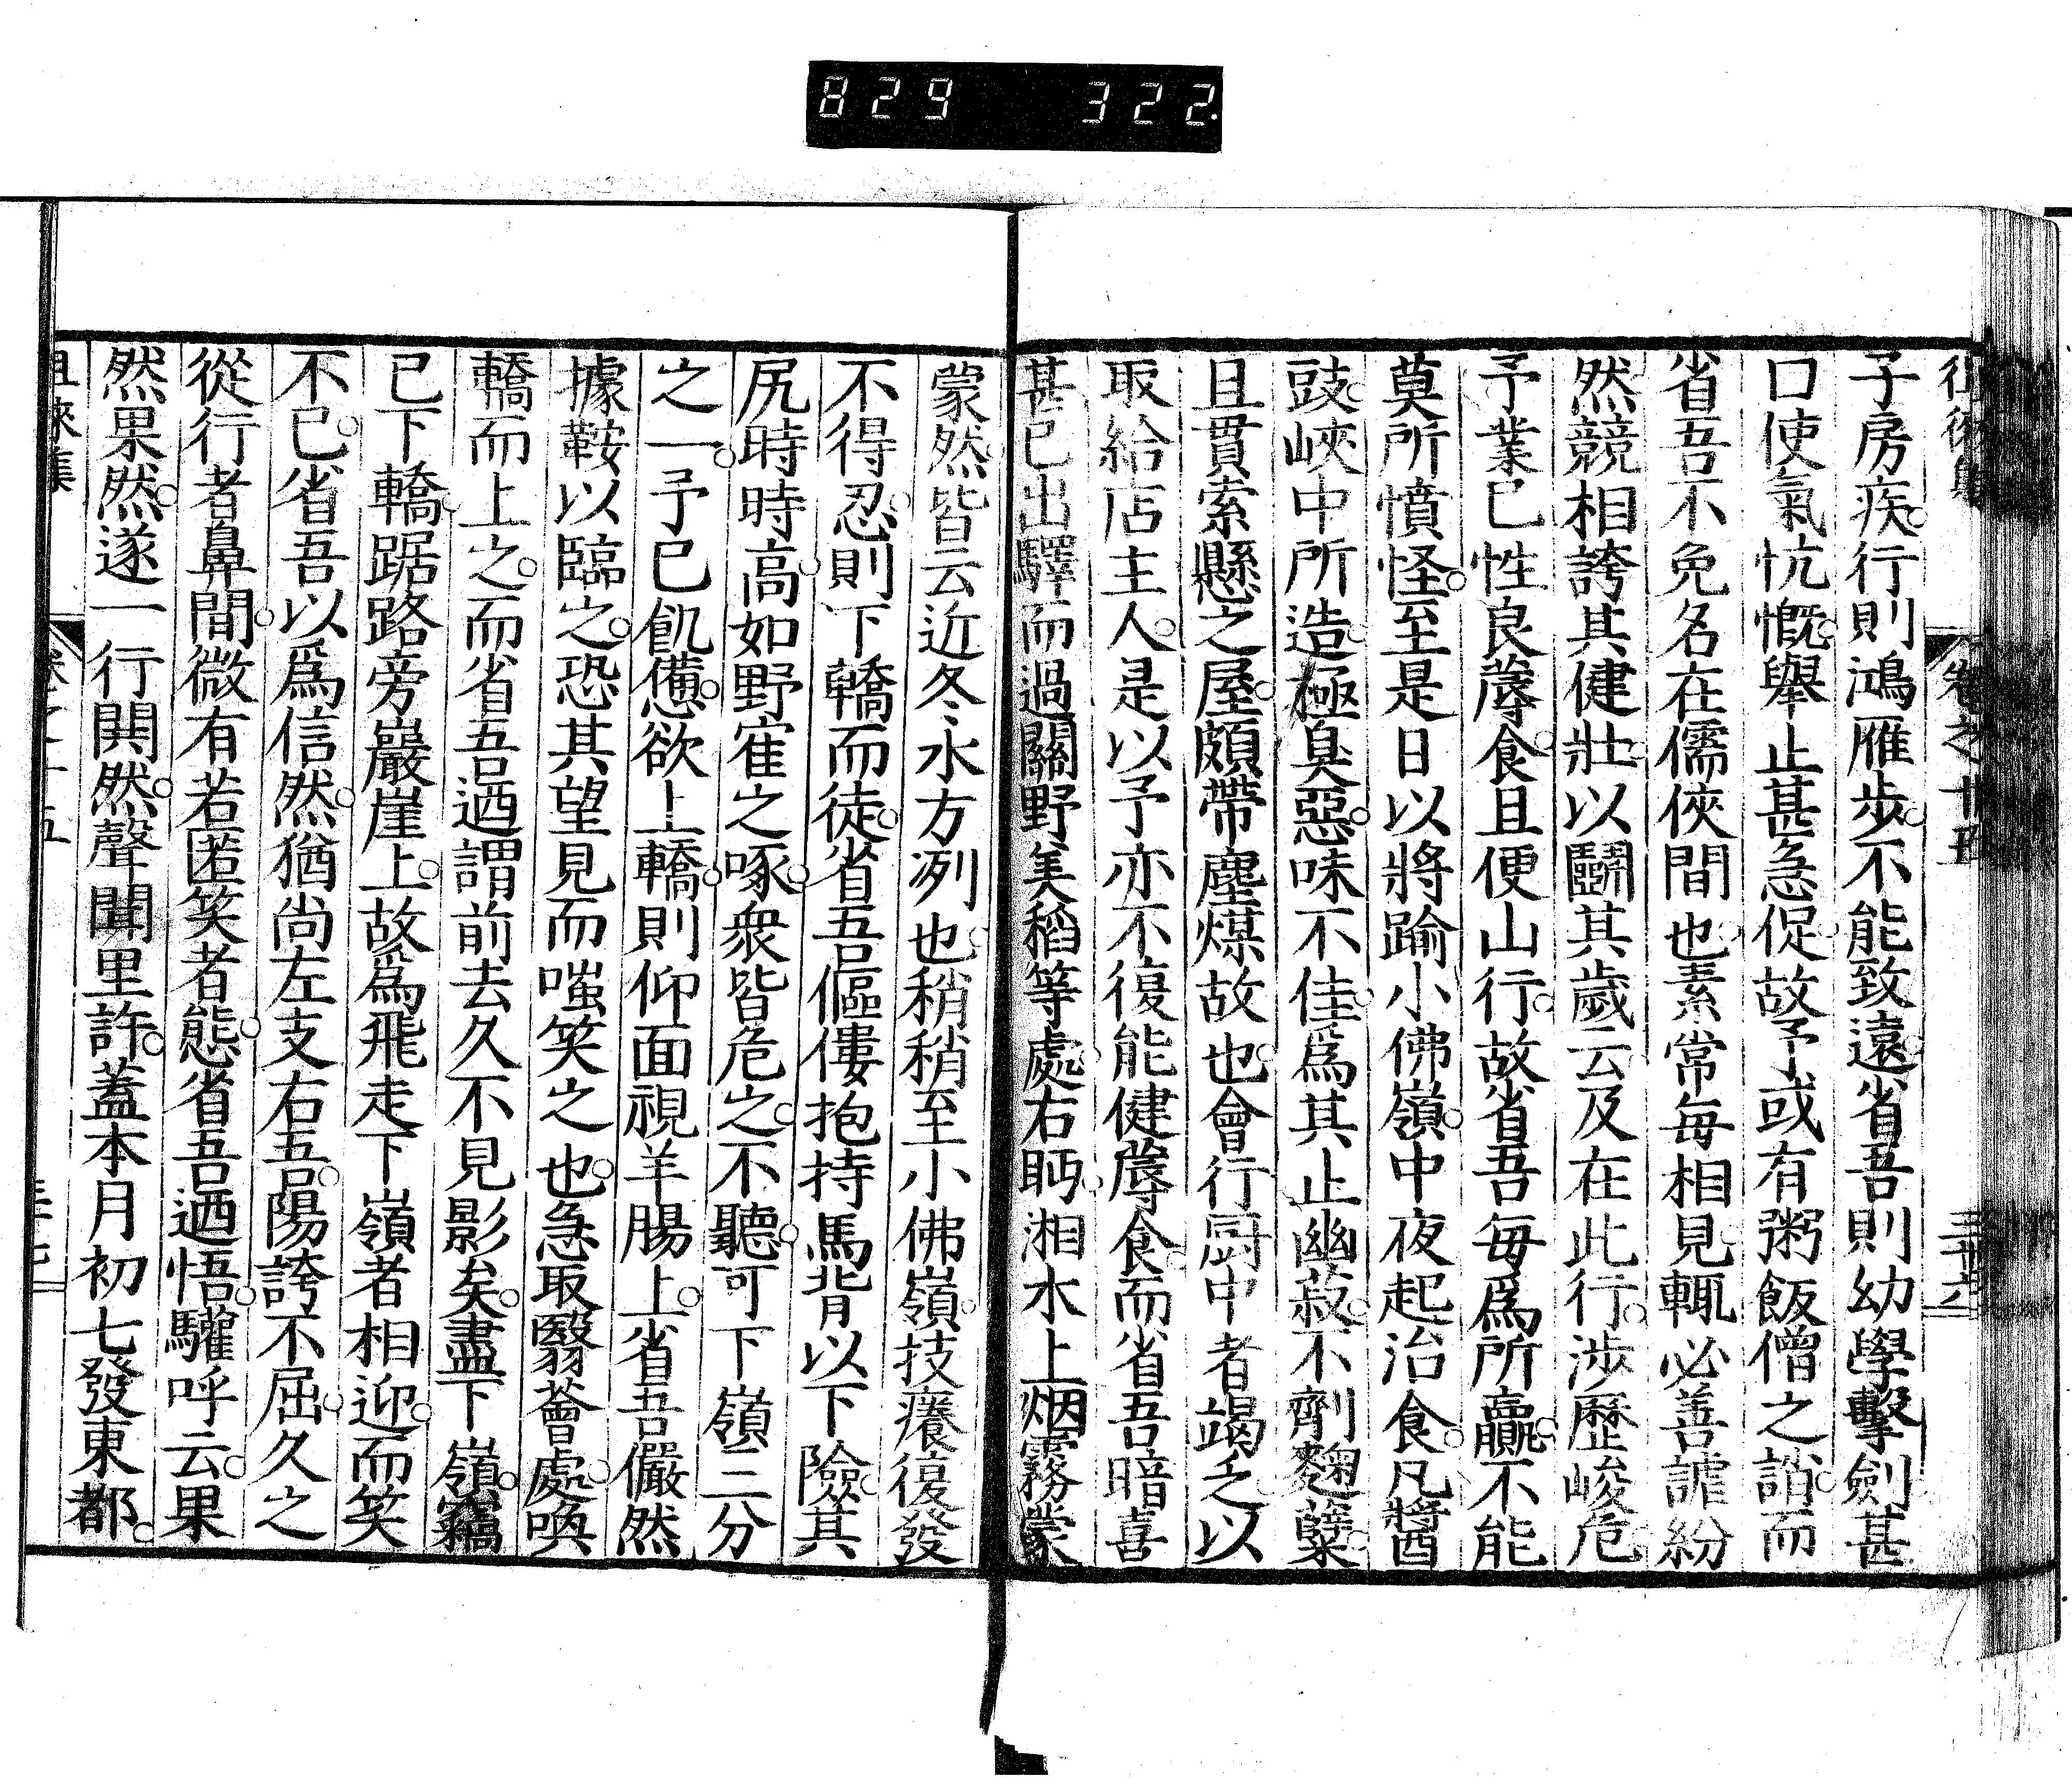 829 322.
徂徠集 卷之十五 三十六
子房疾。行則鴻雁步。不能致遠。省吾則幼學擊劍甚
口使氣忼慨。舉止甚急促。故予或有粥飯僧之誚。而
省吾不免名在儒俠間也。素常每相見。輒必善謔紛
然。競相誇其健壯。以鬪其歲云。及在此行。涉歷峻危。
予業已性良蓐食。且便山行。故省吾每爲所贏。不能
莫所憤怪。至是日以將踰小佛嶺。中夜起治食。凡醬
豉。峽中所造。極臭惡。味不佳。爲其止幽菽。不劑麴櫱。
且貫索懸之屋。頗帶塵煤故也。會行厨中者竭乏。以
取給店主人。是以予亦不復能健蓐食。而省吾暗喜
甚。已出驛而過關野美稻等處。右眄湘水上烟霧蒙
蒙然。皆云近冬水方冽也。稍稍至小佛嶺。技癢復發
不得忍。則下轎而徒。省吾傴僂抱持馬背以下險。其
尻時時高如野寉之啄。衆皆危之。不聽。可下嶺三分
之一。予已飢憊。欲上轎。則仰面視羊腸上。省吾儼然
據鞍以臨之。恐其望見而嗤笑之也。急取翳薈處。喚
轎而上之。而省吾迺謂前去久不見影矣。盡下嶺。竊
已下轎。踞路旁巖崖上。故爲飛走下嶺者相迎。而笑
不已。省吾以爲信然。猶尚左支右吾。陽誇不屈。久之
從行者鼻間。微有若匿笑者態。省吾迺悟。驩呼云。果
然果然。遂一行閧然。聲聞里許。蓋本月初七發東都。
徂徠集 卷之十五 三十七